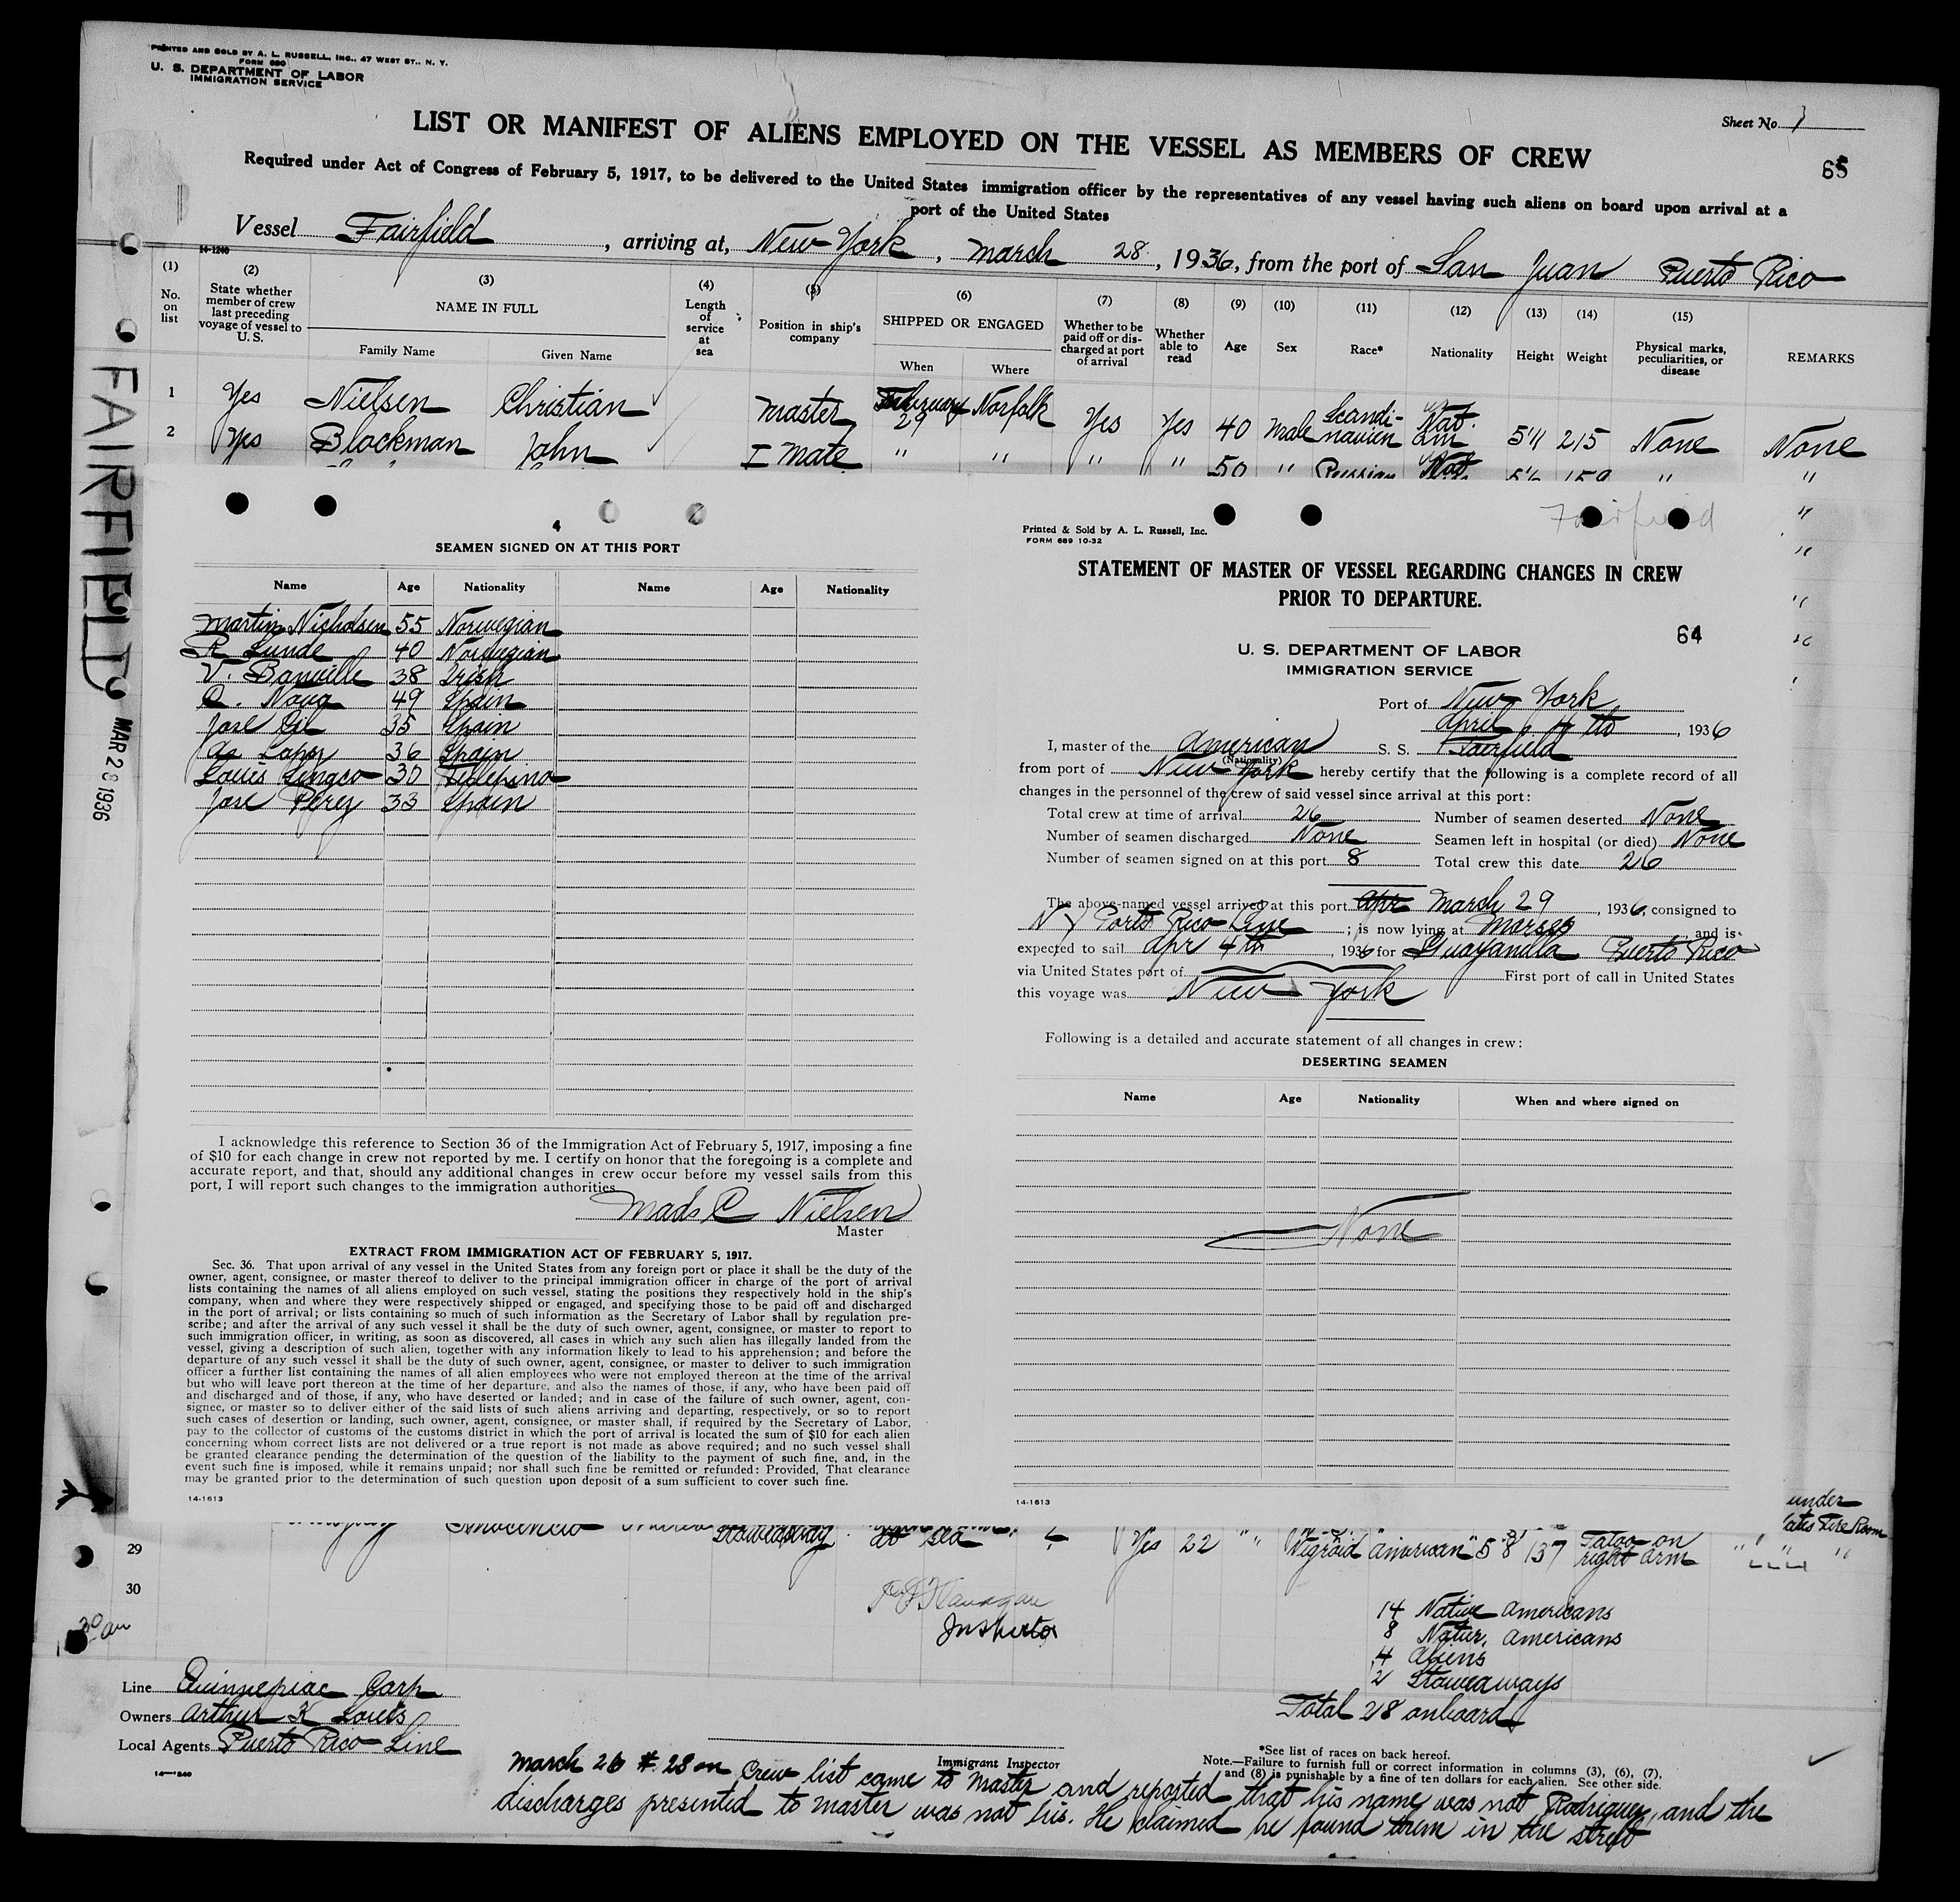 PRINTED AND SOLD BY A. L. RUSSELL, INC., 47 WEST ST., N. Y.
FORM 680
U. S. DEPARTMENT OF LABOR
IMMIGRATION SERVICE
Sheet No. 1
LIST OR MANIFEST OF ALIENS EMPLOYED ON THE VESSEL AS MEMBERS OF CREW
65
Required under Act of Congress of February 5, 1917, to be delivered to the United States immigration officer by the representatives of any vessel having such aliens on board upon arrival at a
port of the United States
Vessel Fairfield, arriving at, New York, March 28, 1936, from the port of San Juan Puerto Rico
14-1240
(1) No. on list
(2) State whether member of crew last preceding voyage of vessel to U. S.
(3) NAME IN FULL Family Name Given Name
(4) Length of service at sea
(5) Position in ship's company
(6) SHIPPED OR ENGAGED When Where
(7) Whether to be paid off or discharged at port of arrival
(8) Whether able to read
(9) Age
(10) Sex
(11) Race*
(12) Nationality
(13) Height
(14) Weight
(15) Physical marks, peculiarities, or disease
REMARKS
1 Yes Nielsen Christian Master February 29 Norfolk Yes Yes 40 Male Scandinavien Nat. Am 5'11 215 None None
2 Yes Blackman John I Mate " " " " 50 " Russian Nat 5'6 159 " "
FAIRFIELD
MAR 28 1936
4
SEAMEN SIGNED ON AT THIS PORT
Name Age Nationality Name Age Nationality
Martin Nicholsen 55 Norwegian
R Lunde 40 Norwegian
V. Banville 38 Irish
49 Spain
Jose Gil 35 Spain
36 Spain
Louis 30 Fillipino
Jose Perez 33 Spain
I acknowledge this reference to Section 36 of the Immigration Act of February 5, 1917, imposing a fine
of $10 for each change in crew not reported by me. I certify on honor that the foregoing is a complete and
accurate report, and that, should any additional changes in crew occur before my vessel sails from this
port, I will report such changes to the immigration authorities.
Mads C Nielsen
Master
EXTRACT FROM IMMIGRATION ACT OF FEBRUARY 5, 1917.
Sec. 36. That upon arrival of any vessel in the United States from any foreign port or place it shall be the duty of the
owner, agent, consignee, or master thereof to deliver to the principal immigration officer in charge of the port of arrival
lists containing the names of all aliens employed on such vessel, stating the positions they respectively hold in the ship's
company, when and where they were respectively shipped or engaged, and specifying those to be paid off and discharged
in the port of arrival; or lists containing so much of such information as the Secretary of Labor shall by regulation pre-
scribe; and after the arrival of any such vessel it shall be the duty of such owner, agent, consignee, or master to report to
such immigration officer, in writing, as soon as discovered, all cases in which any such alien has illegally landed from the
vessel, giving a description of such alien, together with any information likely to lead to his apprehension; and before the
departure of any such vessel it shall be the duty of such owner, agent, consignee, or master to deliver to such immigration
officer a further list containing the names of all alien employees who were not employed thereon at the time of the arrival
but who will leave port thereon at the time of her departure, and also the names of those, if any, who have been paid off
and discharged and of those, if any, who have deserted or landed; and in case of the failure of such owner, agent, con-
signee, or master so to deliver either of the said lists of such aliens arriving and departing, respectively, or so to report
such cases of desertion or landing, such owner, agent, consignee, or master shall, if required by the Secretary of Labor,
pay to the collector of customs of the customs district in which the port of arrival is located the sum of $10 for each alien
concerning whom correct lists are not delivered or a true report is not made as above required; and no such vessel shall
be granted clearance pending the determination of the question of the liability to the payment of such fine, and, in the
event such fine is imposed, while it remains unpaid; nor shall such fine be remitted or refunded: Provided, That clearance
may be granted prior to the determination of such question upon deposit of a sum sufficient to cover such fine.
14-1613
Fairfield
Printed & Sold by A. L. Russell, Inc.
FORM 689 10-32
STATEMENT OF MASTER OF VESSEL REGARDING CHANGES IN CREW
PRIOR TO DEPARTURE.
64
U. S. DEPARTMENT OF LABOR
IMMIGRATION SERVICE
Port of New York
April 4 th, 1936
I, master of the American S. S. Fairfield
(Nationality)
from port of New York hereby certify that the following is a complete record of all
changes in the personnel of the crew of said vessel since arrival at this port:
Total crew at time of arrival 26 Number of seamen deserted None
Number of seamen discharged None Seamen left in hospital (or died) None
Number of seamen signed on at this port 8 Total crew this date 26
The above-named vessel arrived at this port Apr March 29, 1936, consigned to
N Y Porto Rico Line; is now lying at, and is
expected to sail Apr 4 th, 1936 for Guayanilla Puerto Rico
via United States port of First port of call in United States
this voyage was New York
Following is a detailed and accurate statement of all changes in crew:
DESERTING SEAMEN
Name Age Nationality When and where signed on
None
14-1613
under
Fire Room
29 Inocencio at sea Yes 22 " Negroid American 5'8 137 Tatoo on right arm " " "
30
P J Flanagan
Inspector
14 Native Americans
8 Natur. Americans
4 Aliens
2 Stowaways
Total 28 onboard
Line Quinnepiac Corp
Owners Arthur K Louis
Local Agents Puerto Rico Line
14-1240
Immigrant Inspector
*See list of races on back hereof.
Note.—Failure to furnish full or correct information in columns (3), (6), (7),
and (8) is punishable by a fine of ten dollars for each alien. See other side.
March 26 # 28 on Crew list came to Master and reported that his name was not Rodriguez, and the
discharges presented to Master was not his. He claimed he found them in the street